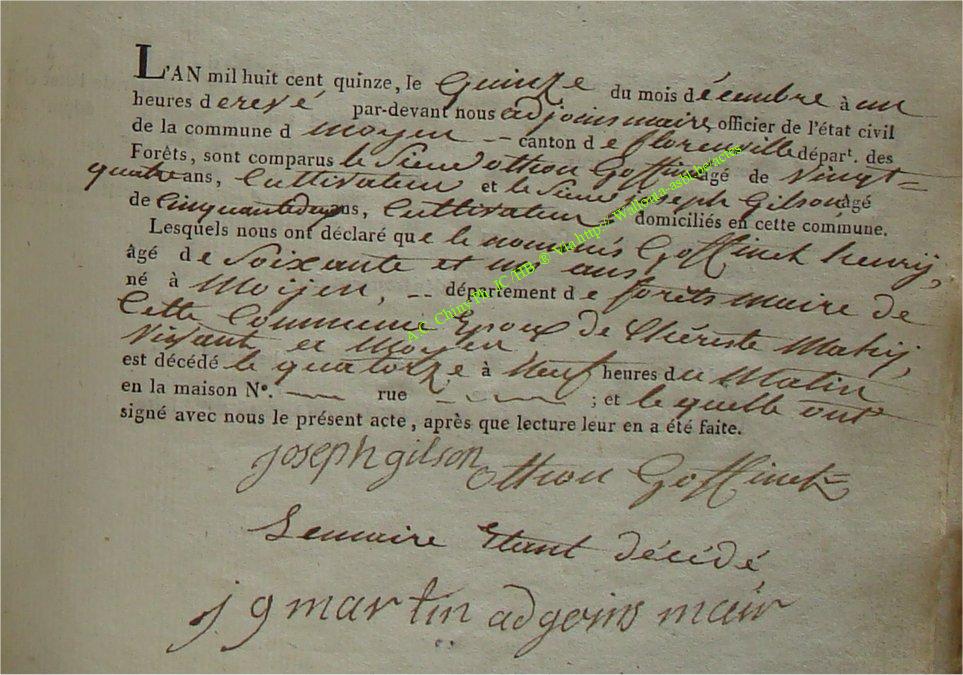 L'AN mil huit cent quinze, le quinze du mois décembre à un
heures d erevé par-devant nous adjoins maire officier de l'état civil
de la commune d moyen – canton d e florenville départ. des
Forêts, sont comparus le Sieur otton Goffinet agé de vingt=
quatre ans, Cultivateur et le Sieur Joseph Gilson âgé
de Cinquante ans, Cultivateur domiciliés en cette commune.
Lesquels nous ont déclaré que le nommés Goffinet henry,
âgé d e Soixante et un ans
né à Moyen, -- département d e forêts maire de
Cette Commune Epoux de thérèste Mahy,
Vivant et Moyen
est décédé le quatorze à Neuf heures du Matin
en la maison N°. — rue — ; et le quelle ont
signé avec nous le présent acte, après que lecture leur en a été faite.
joseph gilson otton Goffinet
Le maire Etant décédé
j g martin adgoins mair
A.C. Chiny Ph. JC/HB ® Via http://Wallonia-asbl-be/actes